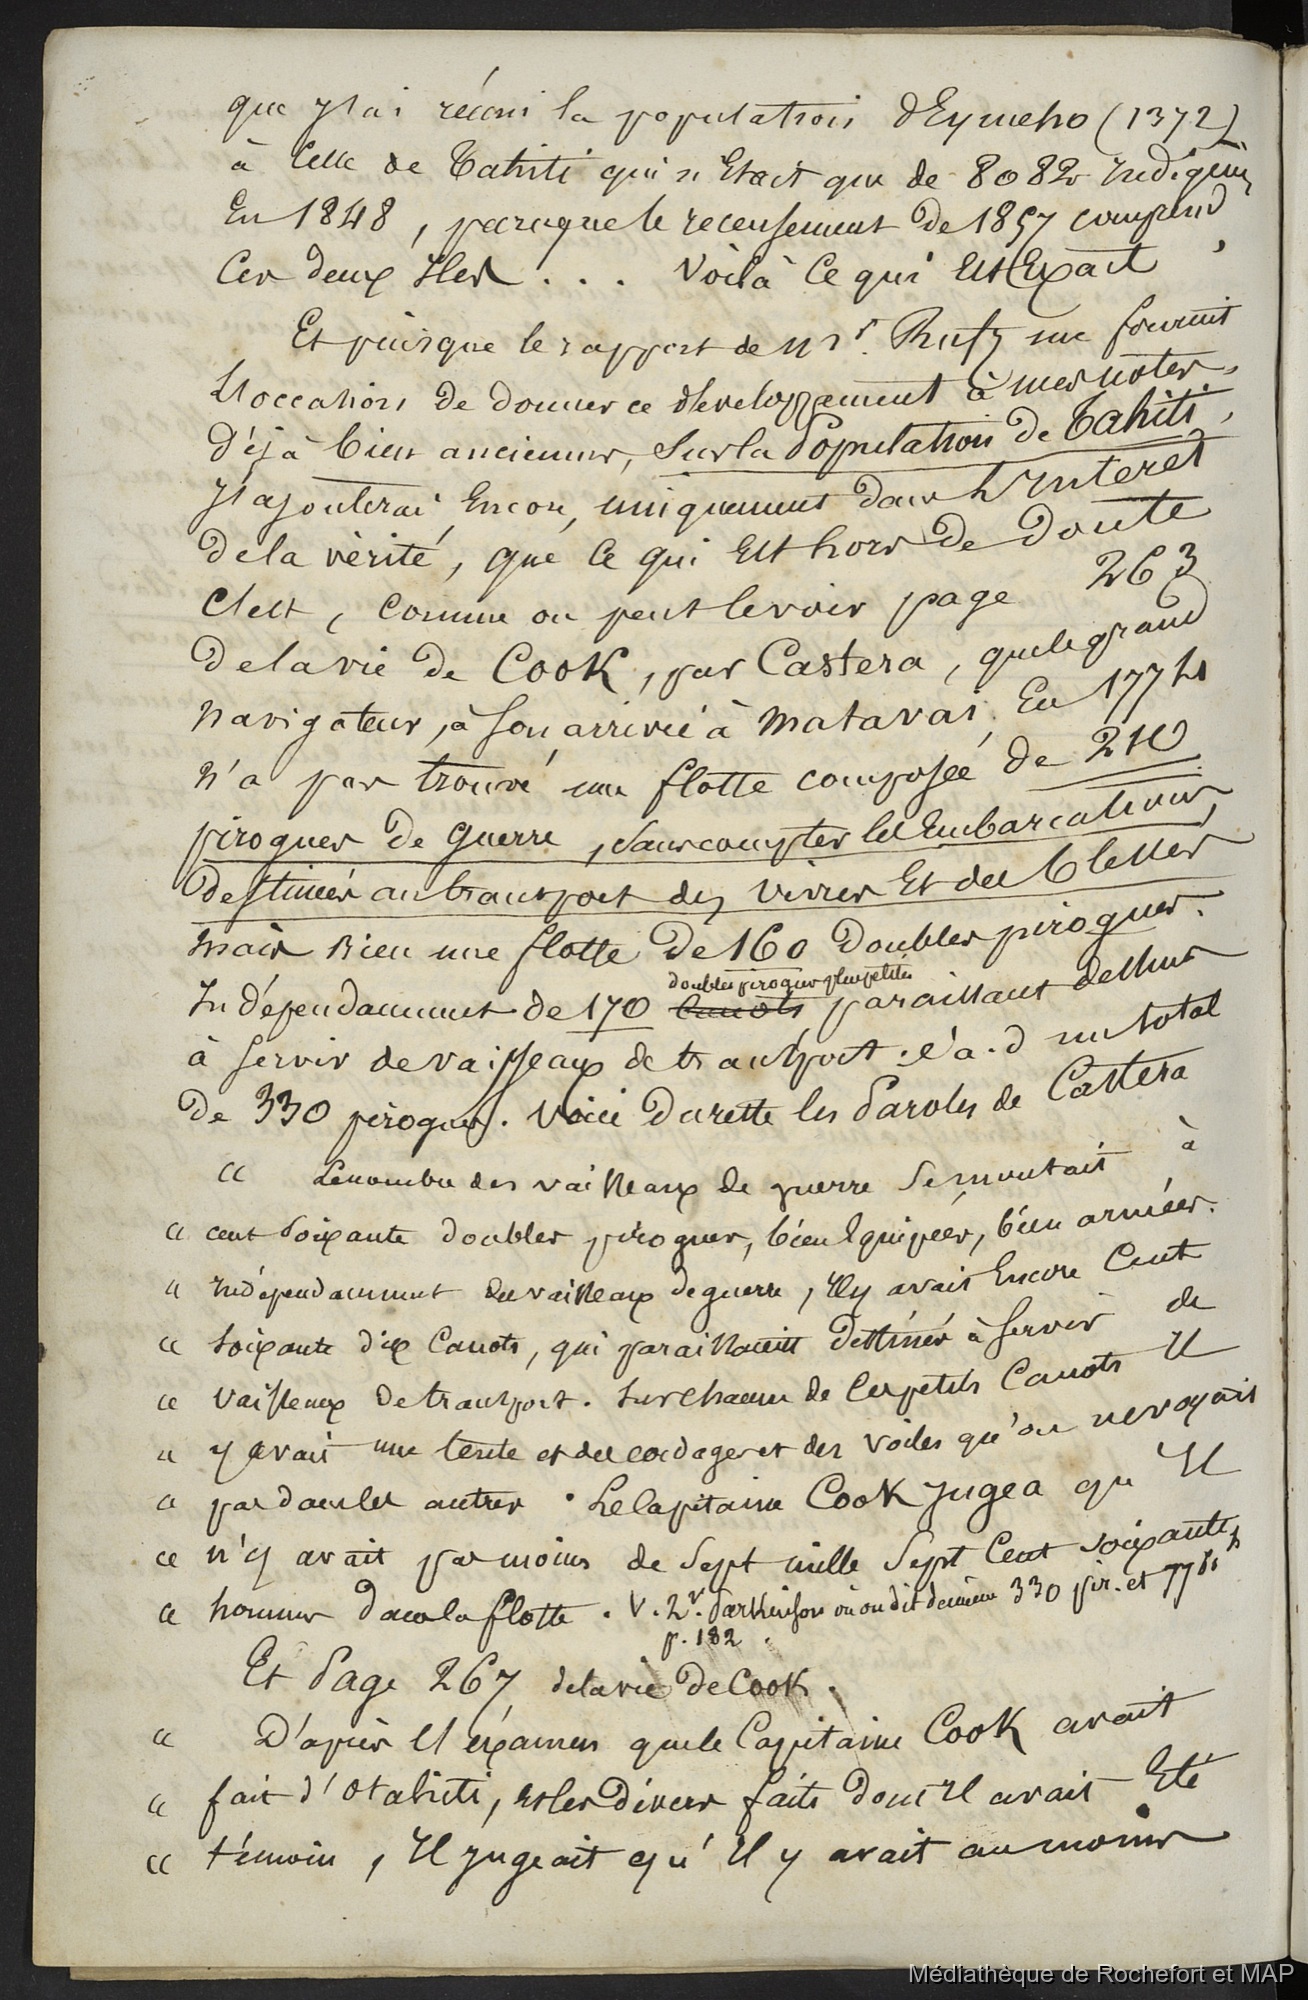 que j'ai réuni la population d'Eymeho (1372)
à celle de Tahiti qui n'était que de 8082 Indigènes
En 1848, parceque le recensement de 1857 comprend
Ces deux Iles . . . Voilà Ce qui Est Exact
Et puisque le rapport de Mr. Rufz me fournit
l'occasion de donner ce développement à mes notes,
déjà bien anciennes, sur la Population de Tahiti,
j'ajouterai Encore, uniquement dans l'Interet
de la vérité, que Ce qui Est hors de Doute
C'est, Comme on peut le voir page 263
de la vie de Cook, par Castera, que le grand
navigateur, à son arrivée à Matavai, En 1774
n'a pas trouvé une flotte composée de 210
pirogues de Guerre, sans compter les Embarcations
destinées au transport des vivres Et des blessés
mais Bien une flotte De 160 Doubles pirogues.
Indépendamment de 170 canots doubles pirogues plus petites paraissant destinées
à servir de vaisseaux de transport. c'à.d un total
De 330 pirogues. Voici Dureste les Paroles de Castera
" Le nombre des vaisseaux de guerre se montait à
" cent Soixante doubles pirogues, bien Equipées, bien armées.
" Indépendamment des vaisseaux de guerre, Il y avait Encore Cent
" soixante dix Canots, qui paraissaient Destinés à Servir de
" vaisseaux de transport. Sur chacun de Ces petits Canots Il
" y avait une tente et des cordages et des voiles qu'on ne voyait
" pas dans les autres. Le Capitaine Cook jugea qu'Il
" n'y avait pas moins de Sept mille Sept Cent soixante
" hommes dans la flotte. V. 2r. Parkinson où on dit de même 330 pir. et 77
p. 182.
Et Page 267 de la vie De Cook.
" D'après l'éxamen que le Capitaine Cook avait
" fait d'Otahiti, et les Divers faits Dont Il avait Eté
" témoin, Il jugeait qu'Il y avait au moins
Médiathèque de Rochefort et MAP